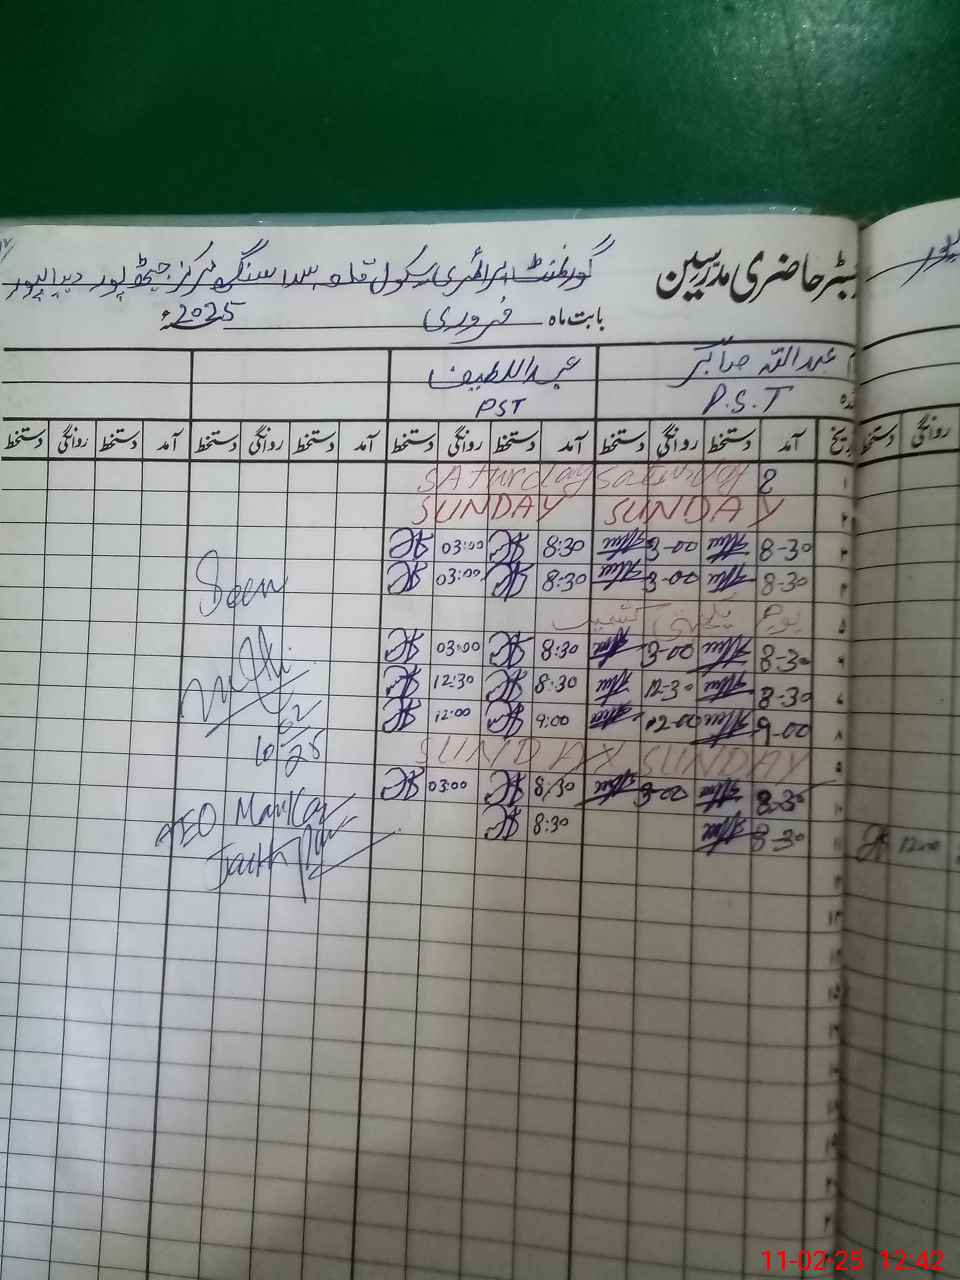 رجسٹر حاضری مدرسین گورنمنٹ پرائمری سکول قلعہ سدا سنگھ مرکز جیٹھ پور دیپالپور
بابت ماہ فروری 2025
عبداللہ صابر عبداللطیف
P.S.T PST
تاریخ آمد دستخط روانگی دستخط آمد دستخط روانگی دستخط آمد دستخط روانگی دستخط آمد دستخط روانگی دستخط روانگی دستخط
۱ Saturday Saturday
۲ SUNDAY SUNDAY
۳ 8-30 3-00 8:30 03:00
۴ 8-30 3-00 8:30 03:00
Seen
۵ یوم یکجہتی کشمیر
۶ 8-30 3-00 8:30 03:00
8-30 12-30 8:30 12:30
۸ 9-00 12-00 9:00 12:00
۹ SUNDAY SUNDAY
10/02/25
۱۰ 8-30 3-00 8:30 03:00
۱۱ 8-30 8:30 12:00
AEO Markaz
۱۳
۱۵
11-02-25 12:42